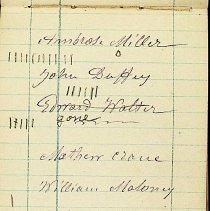 Ambrose Miller
John Duffey
Edward Walter
gone
Mathew Crane
William Maloney